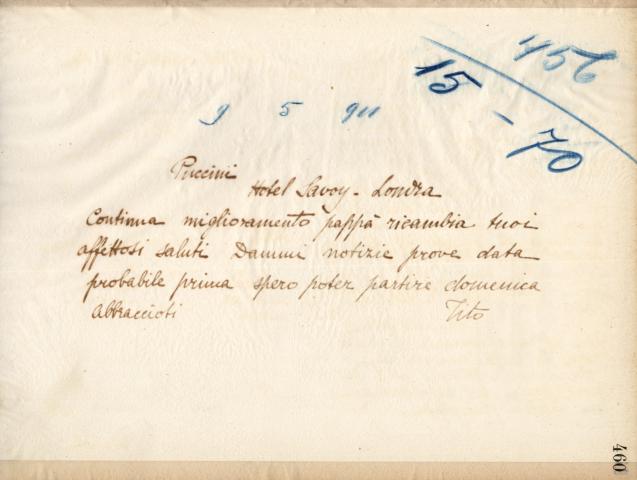 456
15-70
9 5 911
Puccini
Hotel Savoy - Londra
Continua miglioramento pappà ricambia tuoi
affettosi saluti Dammi notizie prove data
probabile prima spero poter partire domenica
Abbraccioti Tito
460